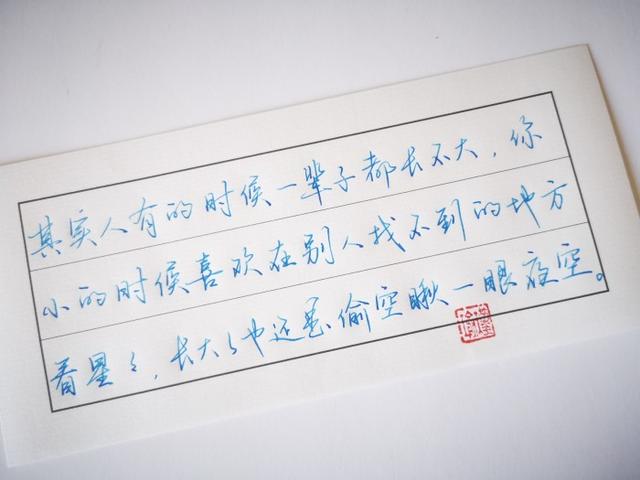 其实人有的时候一辈子都长不大，你
小的时候喜欢在别人找不到的地方
看星星，长大了也还是偷空瞅一眼夜空。